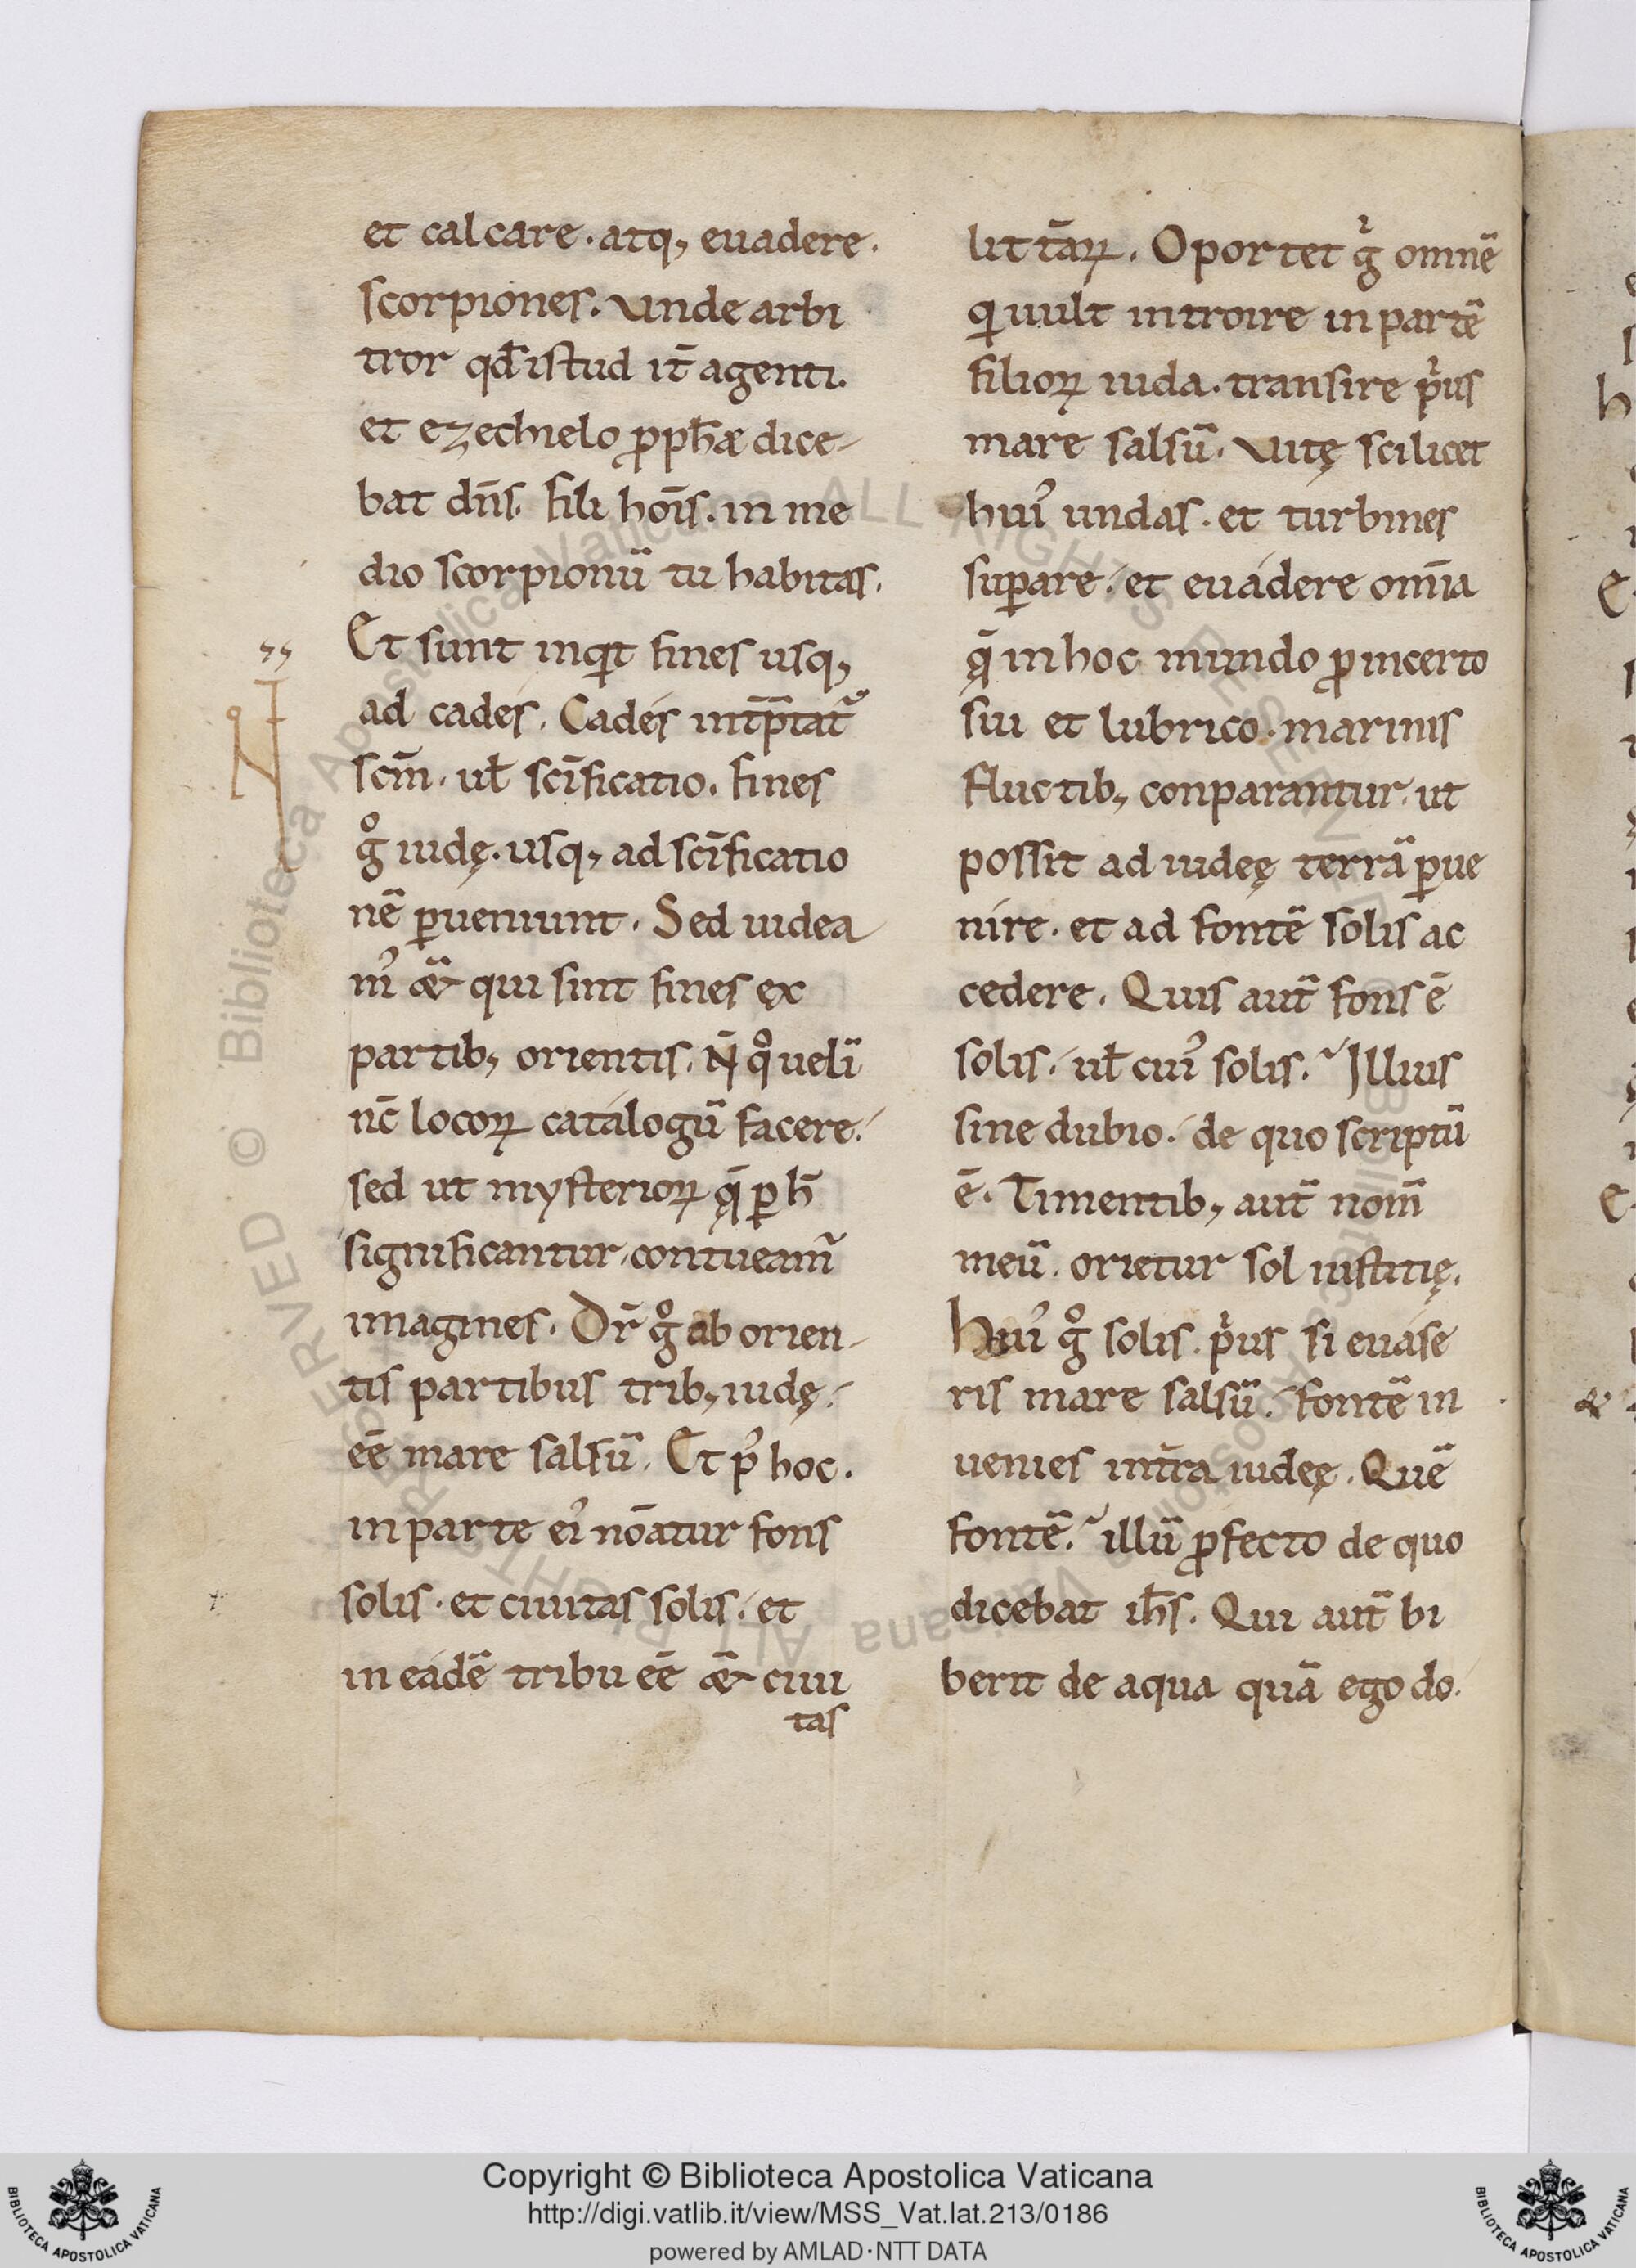 et calcare. atq; euadere.
scorpiones. Vnde arbi
tror qđ istud it̄ agenti.
et ezechielo ꝓph̄æ dice-
bat dn̄s. fili hoīs. in me
dio scorpionū tu habitas.
Et sunt inqͥt fines usq;
ad cades. Cades int̄p̄tat᷒
scm̄. ul̄ scīficatio. fines
gͦ iudę. usq; ad scīficatio
nē ꝑueniunt. Sed iudea
m᷒ ǣ& qui sint fines ex
partib; orientis. N̄ qͦ uelī
nc̄ locoꝝ catalogū facere.
sed ut mysterioꝝ q̨̄ ꝑ h̄
significantur, contueam᷒
imagines. Dr̄ gͦ ab orien-
tis partibus trib; iudę.
eē mare salsū. Et p᷒ hoc.
in parte ei᷒ nōatur fons
solis. et ciuitas solis. et
in eadē tribu eē ǣ& ciui
tas
litt̄aꝝ. Oportet gͥ omnē
qͥ uult introire in partē
filioꝝ iuda. transire pͥus
mare salsū. Vitę scilicet
hui᷒ undas. et turbines
suꝑare. et euadere om̄ia
q̨̄ in hoc mundo ꝓ incerto
sui et lubrico. marinis
fluctib; conparantur. ut
possit ad iudeę terrā ꝑue
nire. et ad fontē solis ac
cedere. Quis aut̄ fons ē
solis. ul̄ cui᷒ solis. Illius
sine dubio. de quo scriptū
ē. Timentib; aut̄ nom̄
meū. orietur sol iustitię.
Hui᷒ gͦ solis. pͥus si euase
ris mare salsū. fontē in
uenies int̄ra iudeę. Quē
fontē. illū ꝓfecto de quo
dicebat ih̄s. Qui aut̄ bi
berit de aqua quā ego do.
Copyright © Biblioteca Apostolica Vaticana
http://digi.vatlib.it/view/MSS_Vat.lat.213/0186
powered by AMLAD·NTT DATA